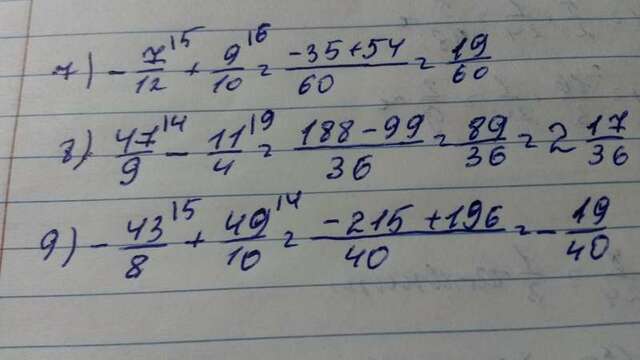 7) - 7/12 ⁵ + 9/10 ⁶ = -35+54/60 = 19/60
8) 47/9 ⁴ - 11/4 ⁹ = 188-99/36 = 89/36 = 2 17/36
9) - 43/8 ⁵ + 49/10 ⁴ = -215+196/40 = - 19/40